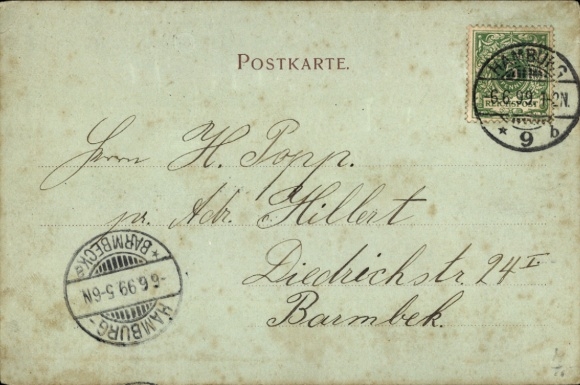 POSTKARTE.
REICHSPOST
HAMBURG
6.6.99. 1-2N.
* 9 b
Herrn H. Popp.
pr. Adr. Hillert
Diedrichstr. 24 I
Barmbek.
HAMBURG-
6.6.99. 5-6N
* BARMBECK *